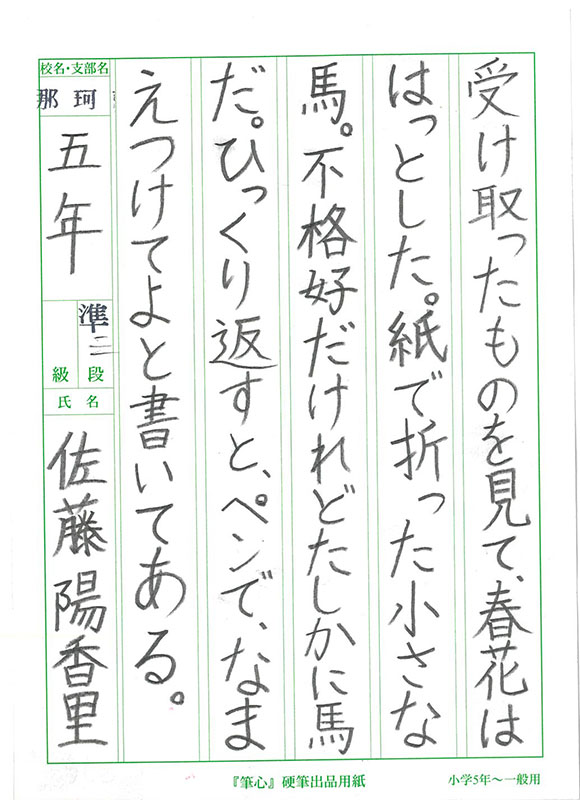 受け取ったものを見て、春花は
はっとした。紙で折った小さな
馬。不格好だけれどたしかに馬
だ。ひっくり返すと、ペンで、なま
えつけてよと書いてある。
校名・支部名
那珂
五年
準二
段
級
氏名
佐藤陽香里
『筆心』硬筆出品用紙
小学5年～一般用